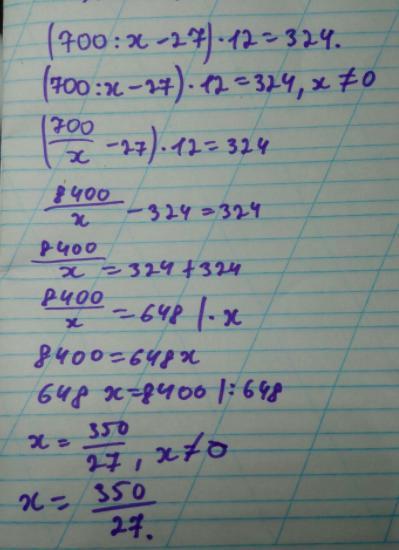 (700:x-27)·12=324.
(700:x-27)·12=324, x≠0
(700/x -27)·12=324
8400/x -324=324
8400/x =324+324
8400/x =648 |·x
8400=648x
648 x=8400 |:648
x= 350/27, x≠0
x= 350/27.